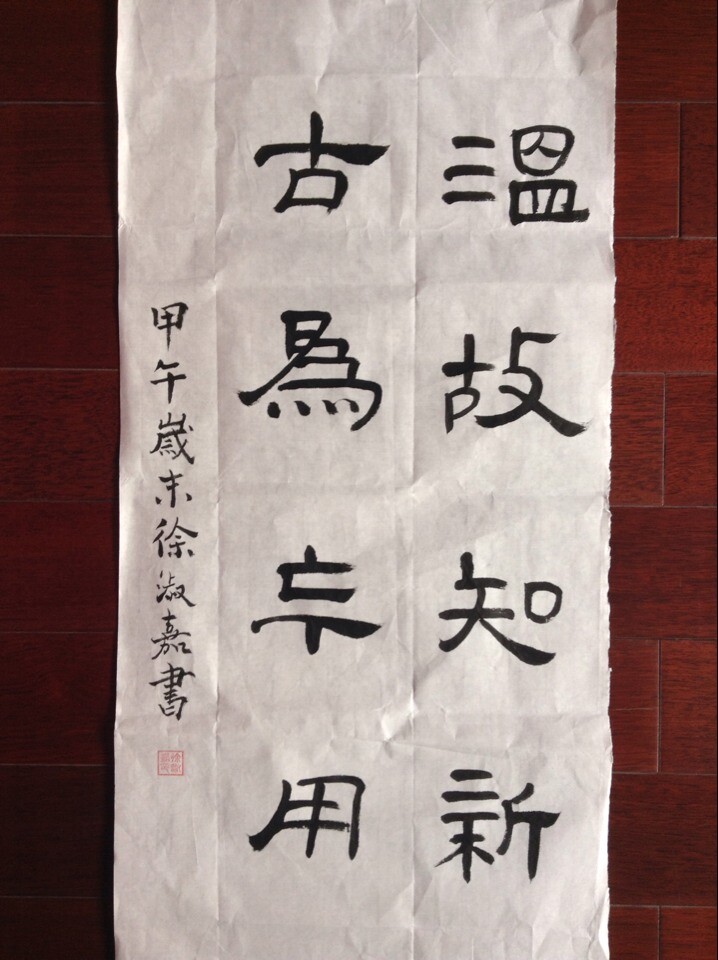 溫故知新
古為今用
甲午歲末徐淑嘉書